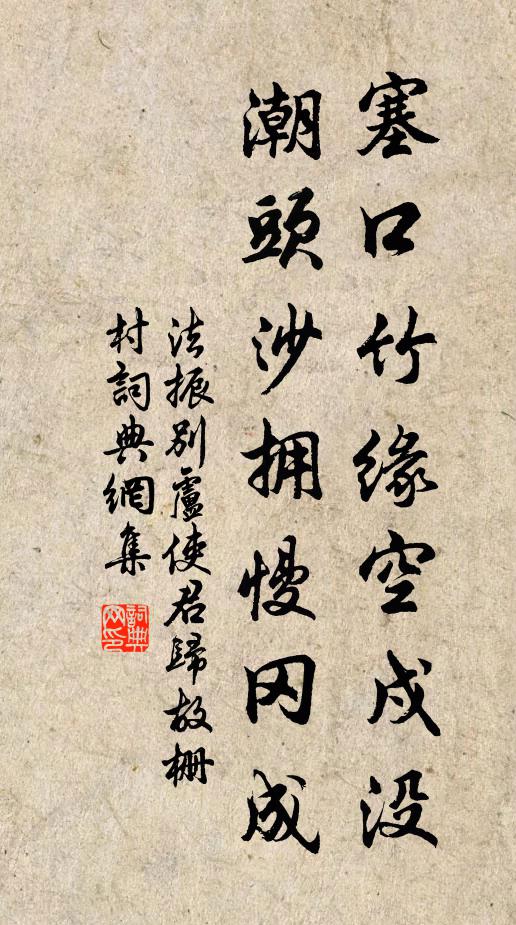 塞口竹缘空戍没
潮頭沙拥慢冈成
法振别盧使君歸故栅
村詞典網集
詞典
网印